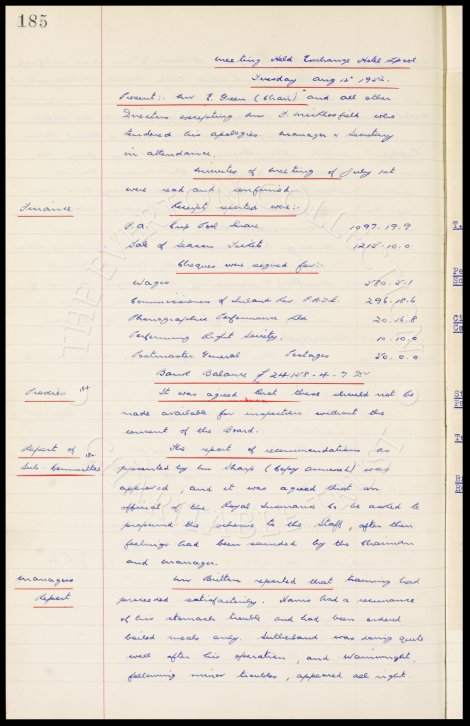 185
Meeting Held Exchange Hotel L'pool
Tuesday Aug 12th 1952.
Present:- Mr E. Green (Chair) and all other
Directors excepting Mr J. Micklesfield who
tendered his apologies. Manager & Secretary
in attendance.
Minutes of Meeting of July 1st
were read and confirmed.
Finance
Receipts reported were:-
F.A. Cup Pool Share 1097.19.9
Sale of Season Tickets 1215.10.0
Cheques were signed for:-
Wages 580.5.1
Commissioners of Inland Rev P.A.Y.E. 296.18.6
Phonographic Performance Ltd 20.16.8
Performing Right Society. 10.10.0
Postmaster General Postages 50.0.0
Bank Balance £24158.4.7 Dr
Proxies
It was agreed that these should not be
made available for inspection without the
consent of the Board.
Report of
Sub-Committee
The report of recommendations as
presented by Mr Sharp (Copy annexed) was
approved, and it was agreed that an
official of the Royal Insurance Co be asked to
propound the scheme to the Staff, after their
feelings had been sounded by the Chairman
and Manager.
Managers
Report
Mr Britton reported that training had
proceeded satisfactorily. Harris had a recurrence
of his stomach trouble and had been ordered
boiled meals only. Sutherland was doing quite
well after his operation, and Wainwright,
following minor troubles, appeared all right.
THE EVERTON COLLECTION
CHARITABLE TRUST